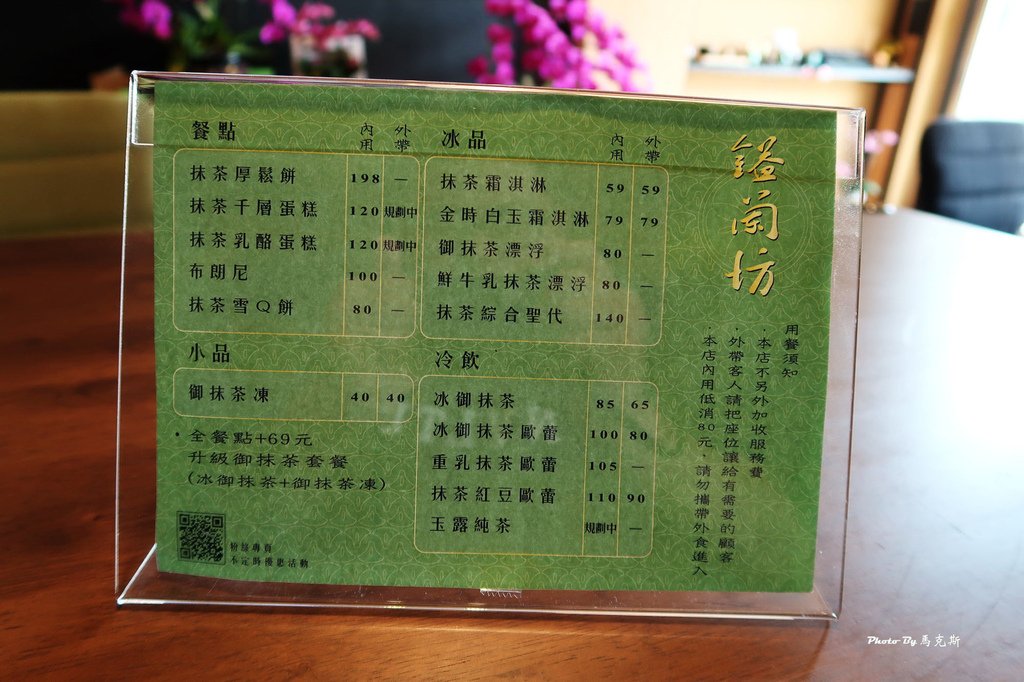 餐點 內用 外帶
抹茶厚鬆餅 198 —
抹茶千層蛋糕 120 規劃中
抹茶乳酪蛋糕 120 規劃中
布朗尼 100 —
抹茶雪Q餅 80 —
小品
御抹茶凍 40 40
・全餐點+69元
升級御抹茶套餐
(冰御抹茶+御抹茶凍)
粉絲專頁
不定時優惠活動
冰品 內用 外帶
抹茶霜淇淋 59 59
金時白玉霜淇淋 79 79
御抹茶漂浮 80 —
鮮牛乳抹茶漂浮 80 —
抹茶綜合聖代 140 —
冷飲
冰御抹茶 85 65
冰御抹茶歐蕾 100 80
重乳抹茶歐蕾 105 —
抹茶紅豆歐蕾 110 90
玉露純茶 規劃中 —
鎰蘭坊
用餐須知
・本店不另外加收服務費
・外帶客人請把座位讓給有需要的顧客
・本店內用低消80元,請勿攜帶外食進入
Photo By 馬克斯